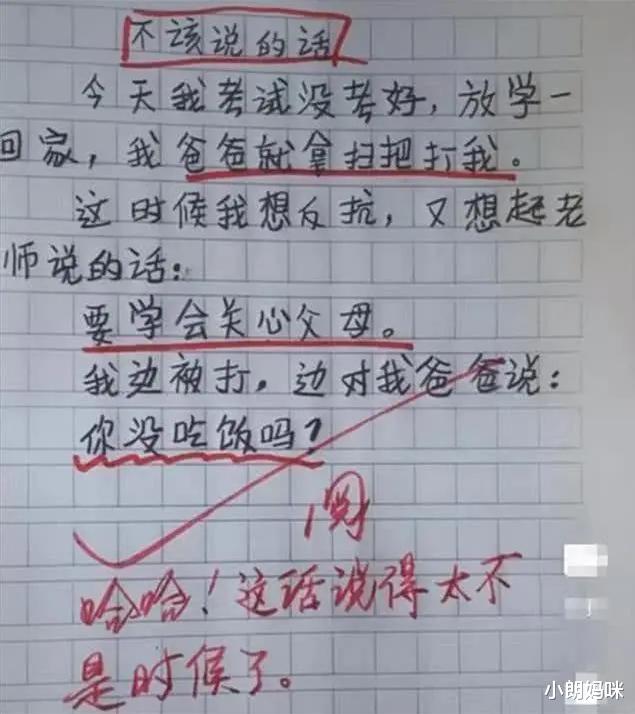 不该说的话
今天我考试没考好，放学一
回家，我爸爸就拿扫把打我。
这时候我想反抗，又想起老
师说的话：
要学会关心父母。
我边被打，边对我爸爸说：
你没吃饭吗？
阅
哈哈！这话说得太不
是时候了。
小朗妈咪